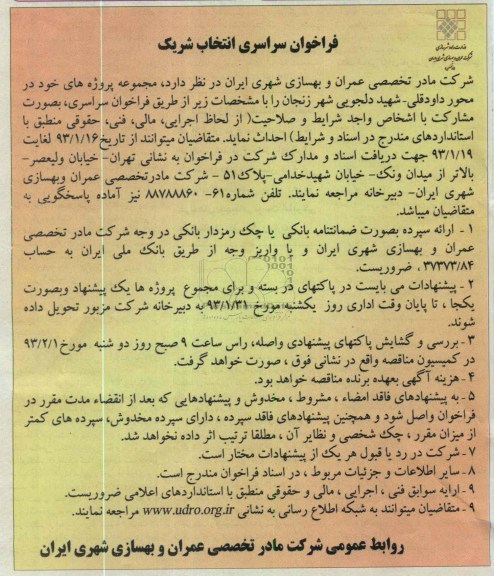 فراخوان سراسری انتخاب شریک
شرکت مادر تخصصی عمران و بهسازی شهری ایران در نظر دارد، مجموعه پروژه های خود در
محور داودقلی- شهید دلجویی شهر زنجان را با مشخصات زیر از طریق فراخوان سراسری، بصورت
مشارکت با اشخاص واجد شرایط و صلاحیت( از لحاظ اجرایی، مالی، فنی، حقوقی منطبق با
استانداردهای مندرج در اسناد و شرایط) احداث نماید. متقاضیان میتوانند از تاریخ ۹۳/۱/۱۶ لغایت
۹۳/۱/۱۹ جهت دریافت اسناد و مدارک شرکت در فراخوان به نشانی تهران- خیابان ولیعصر-
بالاتر از میدان ونک- خیابان شهیدخدامی-پلاک ۵۱ - شرکت مادرتخصصی عمران وبهسازی
شهری ایران- دبیرخانه مراجعه نمایند. تلفن شماره ۶۱- ۸۸۷۸۸۸۶۰ نیز آماده پاسخگویی به
متقاضیان میباشد.
۱ - ارائه سپرده بصورت ضمانتنامه بانکی یا چک رمزدار بانکی در وجه شرکت مادر تخصصی
عمران و بهسازی شهری ایران و یا واریز وجه از طریق بانک ملی ایران به حساب
۳۷۳۷۳/۸۴ ، ضروریست.
۲ - پیشنهادات می بایست در پاکتهای در بسته و برای مجموع پروژه ها یک پیشنهاد وبصورت
یکجا ، تا پایان وقت اداری روز یکشنبه مورخ ۹۳/۱/۳۱ به دبیرخانه شرکت مزبور تحویل داده
شوند.
۳ - بررسی و گشایش پاکتهای پیشنهادی واصله، راس ساعت ۹ صبح روز دو شنبه مورخ ۹۳/۲/۱
در کمیسیون مناقصه واقع در نشانی فوق ، صورت خواهد گرفت.
۴ - هزینه آگهی بعهده برنده مناقصه خواهد بود.
۵ - به پیشنهادهای فاقد امضاء ، مشروط ، مخدوش و پیشنهادهایی که بعد از انقضاء مدت مقرر در
فراخوان واصل شود و همچنین پیشنهادهای فاقد سپرده ، دارای سپرده مخدوش، سپرده های کمتر
از میزان مقرر ، چک شخصی و نظایر آن ، مطلقا ترتیب اثر داده نخواهد شد.
۷ - شرکت در رد یا قبول هر یک از پیشنهادات مختار است.
۸ - سایر اطلاعات و جزئیات مربوط ، در اسناد فراخوان مندرج است.
۹ - ارایه سوابق فنی ، اجرایی ، مالی و حقوقی منطبق با استانداردهای اعلامی ضروریست.
۹ - متقاضیان میتوانند به شبکه اطلاع رسانی به نشانی www.udro.org.ir مراجعه نمایند.
روابط عمومی شرکت مادر تخصصی عمران و بهسازی شهری ایران